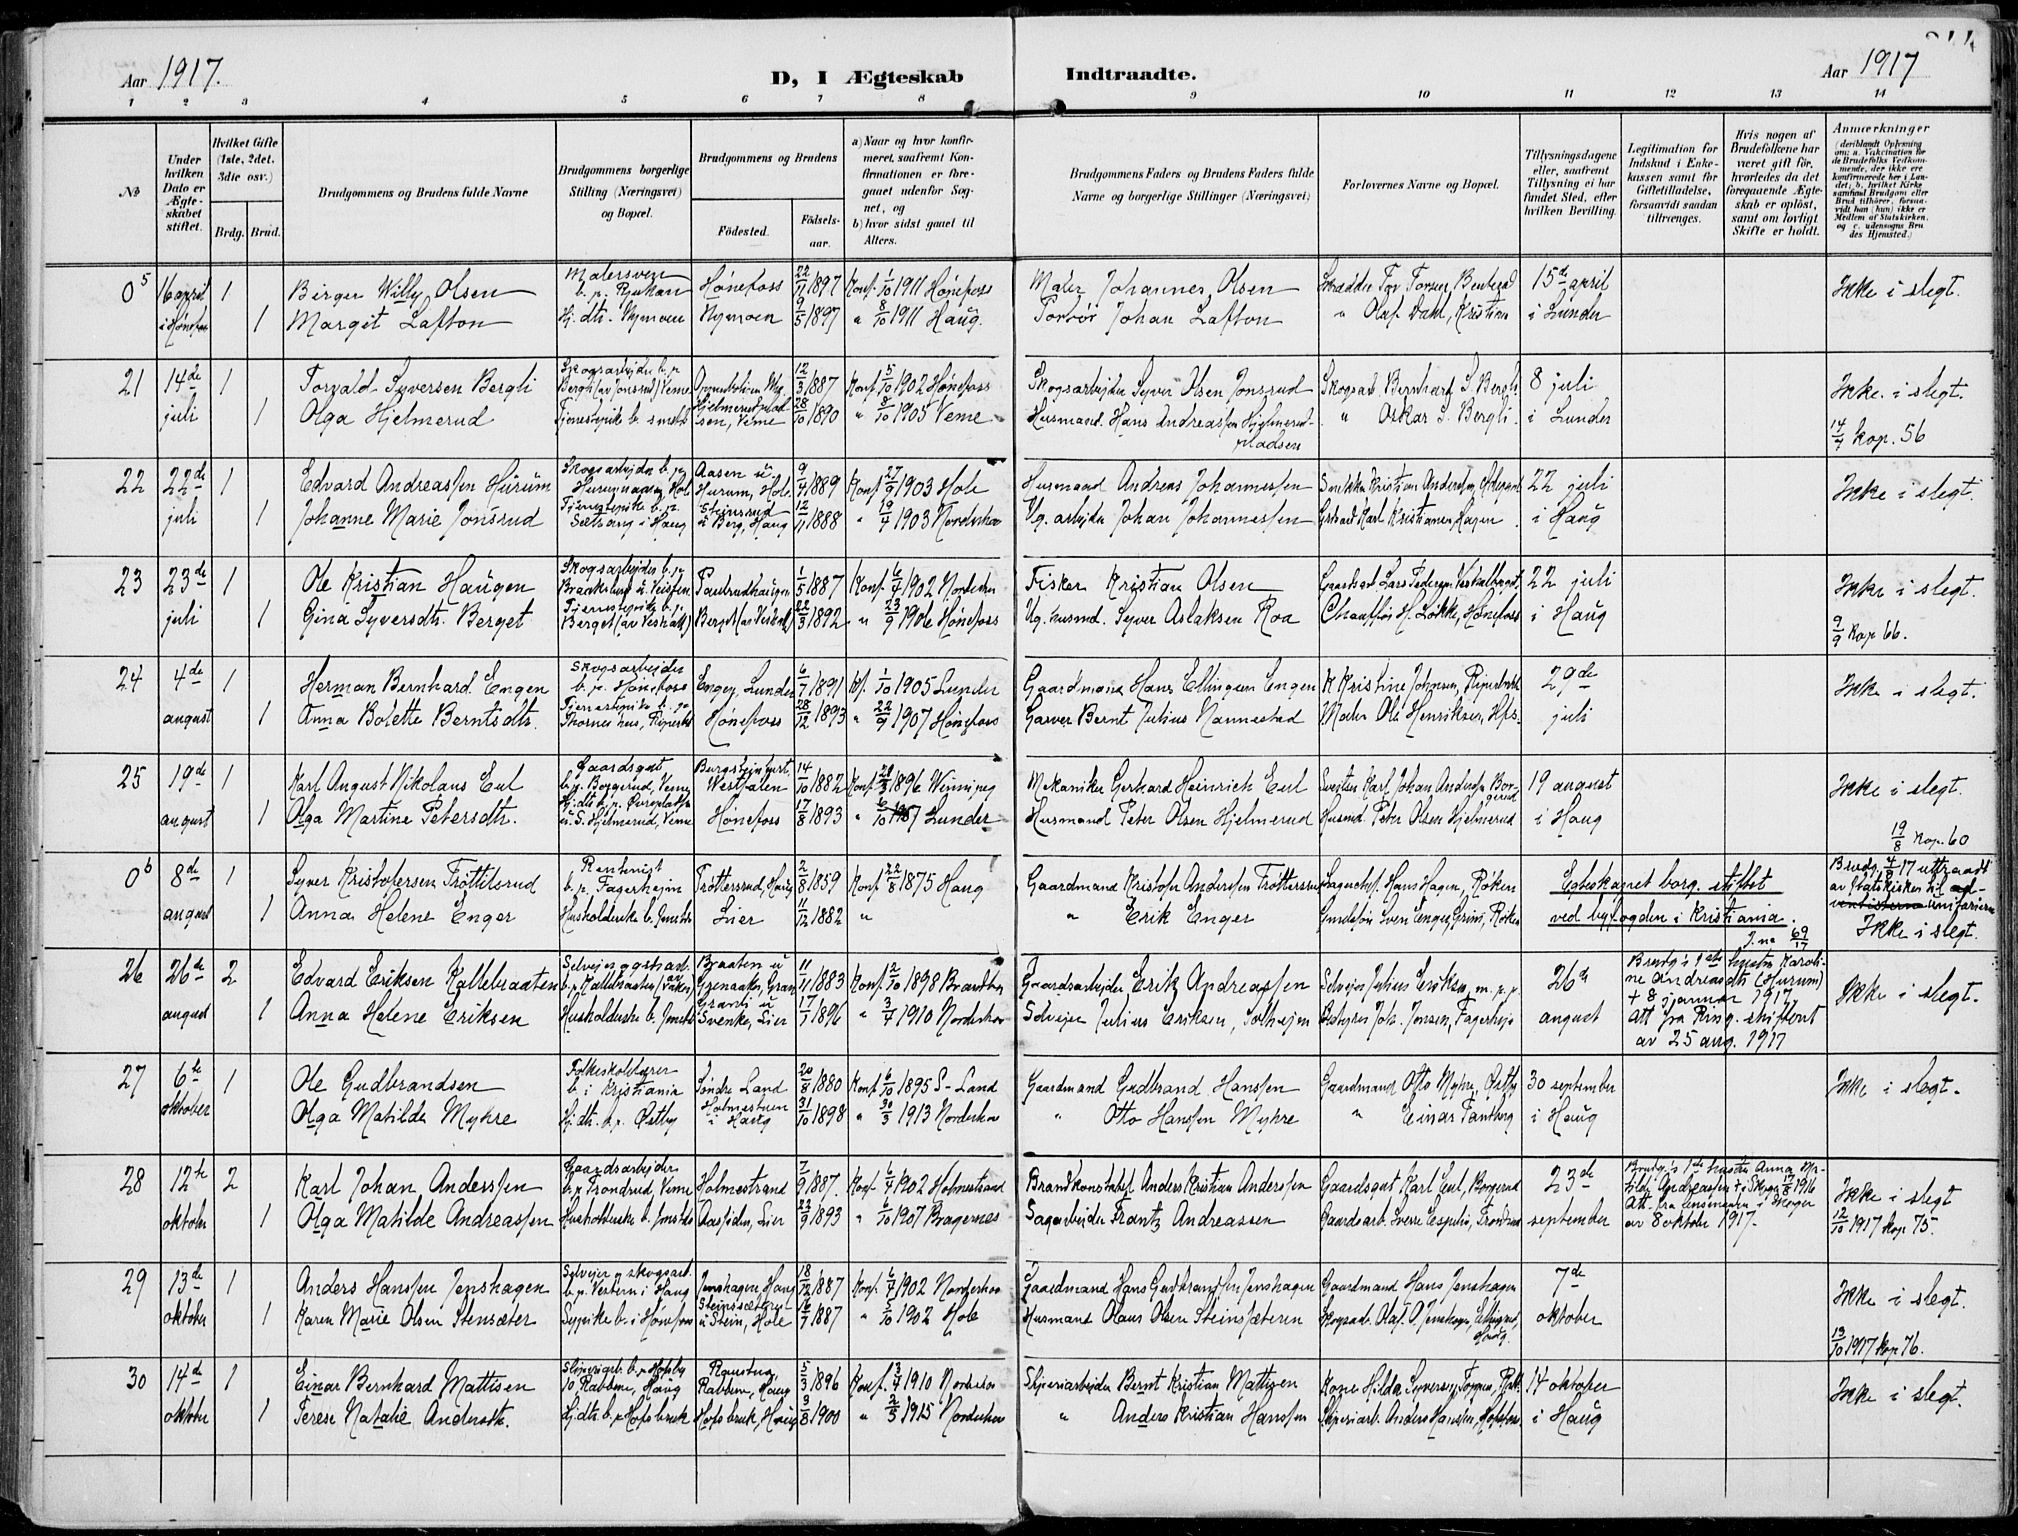 Aar 1917.
D, I Ægteskab
Indtraadte.
Aar 1917
1 2 3 4 5 6 7 8 9 10 11 12 13 14
No
Under hvilken Dato er Ægteskabet stiftet.
Hvilket Gifte (1ste, 2det, 3die osv.)
Brdg. Brud.
Brudgommens og Brudens fulde Navne
Brudgommens borgerlige Stilling (Næringsvei) og Bopæl.
Brudgommens og Brudens
Födested.
Födsels-aar.
a) Naar og hvor konfirmeret, saafremt Konfirmationen er foregaaet udenfor Sognet, og
b) hvor sidst gaaet til Alters.
Brudgommens Faders og Brudens Faders fulde Navne og borgerlige Stillinger (Næringsvei)
Forlovernes Navne og Bopæl.
Tillysningsdagene eller, saafremt Tillysning ei har fundet Sted, efter hvilken Bevilling.
Legitimation for Indskud i Enkekassen samt for Giftetilladelse, forsaavidt saadan tiltrænges.
Hvis nogen af Brudefolkene har været gift för, hvorledes da det foregaaende Ægteskab er oplöst, samt om lovligt Skifte er holdt.
Anmærkninger (deriblandt Oplysning om: a. Vakcination for de Brudefolks Vedkommende, der ikke ere konfirmerede her i Landet; b. hvilket Kirkesamfund Brudgom eller Brud tilhörer, forsaavidt han (hun) ikke er Medlem af Statskirken, og c. udensogns Brudes Hjemsted.)
0 5 16 april 1 Birger Willy Olsen Malersven b. p. Rjukan Hønefoss 22/11 1897 Konf. 1/10 1911 Hønefoss Maler Johannes Olsen 15de april Ikke i slegt.
i Hønefos 1 Margit Lafton Hj. dtr. Nymoen Nymoen 9/5 1897 " 8/10 1911 Haug. Johan Lafton " Olaf Dahl, Kristina i Lunder
21 14de 1 Torvald Syversen Bergli Skogsarbejder b. p. Bergli (av Jonsrud) Veme 12/3 1887 Konf. 5/10 1902 Hønefoss Skogsarbejder Syver Olsen Jonsrud Skogsarb. Bernhard S. Bergli 8 juli Ikke i slegt.
juli 1 Olga Hjelmerud Hjelmerudpladsen, Veme 28/10 1890 " 8/10 1905 Veme Husmand Hans Andreassen Hjelmerudpladsen " Oskar S. Bergli i Lunder
14/7 kop. 56
22 22de 1 Edvard Andreassen Hurum Skogsarbejder b. p. Aasen u Hurum, Hole 9/4 1889 Konf. 27/9 1903 Hole Husmand Andreas Johannessen 22 juli Ikke i slegt.
juli 1 Johanne Marie Jonsrud Tjenestepike b. p. i Haug Steinsrud u Berg, Haug 12/11 1888 " 19/4 1903 Norderhov Vg. arbejder Johan Johannessen Karl Kristiansen Hagen i Haug
23 23de 1 Ole Kristian Haugen Skogsarbejder b. p. Paulrudhaugen 1/5 1887 Konf. 6/4 1902 Norderhov Fisker Kristian Olsen Lars Pedersen 22 juli Ikke i slegt.
juli 1 Gina Syversdtr. Berget Tjenestepike b. p. Berget (av Vestrall) 22/3 1892 " 23/9 1906 Hønefoss Vg. husmd. Syver Aslaksen Roa Chauffør H. Løkke, Hønefoss i Haug
9/9 kop 66.
24 4de 1 Herman Bernhard Engen Skogsarbejder b. p. Hønefoss Engen, Lunder 6/7 1891 Kf. 1/10 1905 Lunder Gaardmand Hans Ellingsen Engen 29de Ikke i slegt.
august 1 Anna Bolette Berntsdtr. Tjenestepike b. p. Hønefoss 28/12 1893 " 22/9 1907 Hønefoss Garver Bernt Julius Nannestad Maler Ole Henriksen, Hfs. juli
25 19de 1 Karl August Nikolaus Eul Gaardsgut b. p. Boggerud, Veme Westfalen 14/10 1882 Konf. 1896 Winnipeg Mekaniker Gerhard Heinrich Eul Karl Johan Anderssen 19 august Ikke i slegt.
august 1 Olga Martine Petersdtr. Hønefoss 17/8 1893 " 6/10 1907 Lunder Husmand Peter Olsen Hjelmerud Husmd. Peter Olsen Hjelmerud i Haug
19/8 kop. 60
0 6 8de 1 Syver Kristofersen Trøttilsrud Rentenist b. p. Fagerheim Haug 2/8 1859 Konf. 22/8 1875 Haug Gaardmand Kristofer Anderssen Hans Hagen, Røken Egteskapet borg. stiftet
august 1 Anna Helene Enger Lier 11/12 1882 " " Erik Enger Sven Enger, Grini, Røken ved byfogden i Kristiania.
Brudg. 4/8 17 uttraadt av statskirken til unitarierne
J. no 69/17 Ikke i slegt.
26 26de 2 Edvard Eriksen Kallebraaten Braaten u Gran 11/11 1883 Konf. 2/10 1898 Brandbu Gaardsarbejder Erik Andreassen Selvejer Julius Eriksen, m. p. p. 26de Ikke i slegt.
august 1 Anna Helene Eriksen Svenke, Lier 17/1 1896 " 3/4 1910 Norderhov Selvejer Julius Eriksen, Solhejm Bestyrer Joh. Jonsen, Fagerhejm august
Brudg.'s 1ste hustru Karoline Andreasdtr. (Hurum) † 8 januar 1917. Att fra Ring. skifteret av 25 aug. 1917
27 6te 1 Ole Gudbrandsen Folkeskolelærer b. i Kristiania Søndre Land 20/8 1880 Konf. 6/10 1895 S-Land Gaardmand Gudbrand Hanssen Gaardmand Otto Myhre, Østby 30 september Ikke i slegt.
oktober 1 Olga Matilde Myhre Hj. dtr. b. p. Østby Holmestuen i Haug 31/10 1898 " 30/3 1913 Norderhov " Otto Hanssen Myhre " Einar Tandberg i Haug
28 12te 2 Karl Johan Anderssen Gaardsarbejder b. p. Trondrud, Veme Holmestrand 7/9 1887. Konf. 6/4 1902 Holmestrand Brandkonstabel Anders Kristian Anderssen Gaardsgut Karl Eul, Boggerud 23de Ikke i slegt
oktober 1 Olga Matilde Andreassen Aassiden, Lier 22/9 1893 " 6/10 1907 Bragernes Sagarbejder Frantz Andreassen september
Brudg's 1ste hustru Anna Matilde Andreassen † i Skoger 17/8 1916 Att. fra lensmanden i Skoger av 8 oktober 1917.
12/10 1917 kop 75.
29 13de 1 Anders Hanssen Jenshagen Selvejer og skogsarb. b. p. Vestern i Haug Jenshagen Haug 18/12 1887 Konf. 6/4 1902 Norderhov Gaardmand Hans Gudbrandssen Jenshagen Gaardmand Hans Jenshagen 7de Ikke i slegt.
oktober 1 Karen Marie Olsen Stensæter Sypike b. i Hønefoss Steinssæteren u Stein, Hole 6/7 1887 " 5/10 1902 Hole Husmand Olaus Olsen Steinssæteren Skogsarb. Olaf O. Jenshagen, Haug. oktober
13/10 1917 kop 76.
30 14de 1 Einar Bernhard Mattisen Rabben, Haug 5/3 1896 Konf. 3/4 1910 Norderhov Sliperiarbejder Bernt Kristian Mattisen Kone Hilda Syversen, Toppen 14 oktober Ikke i slegt.
oktober 1 Terese Natalie Andersdtr. Hj. dtr. b. p. Hofs bruk Hofs bruk, Haug 9/8 1900 " 2/5 1915 Norderhov " Anders Kristian Hanssen Sliperiarb. Anders Hanssen, Hofsfoss i Haug